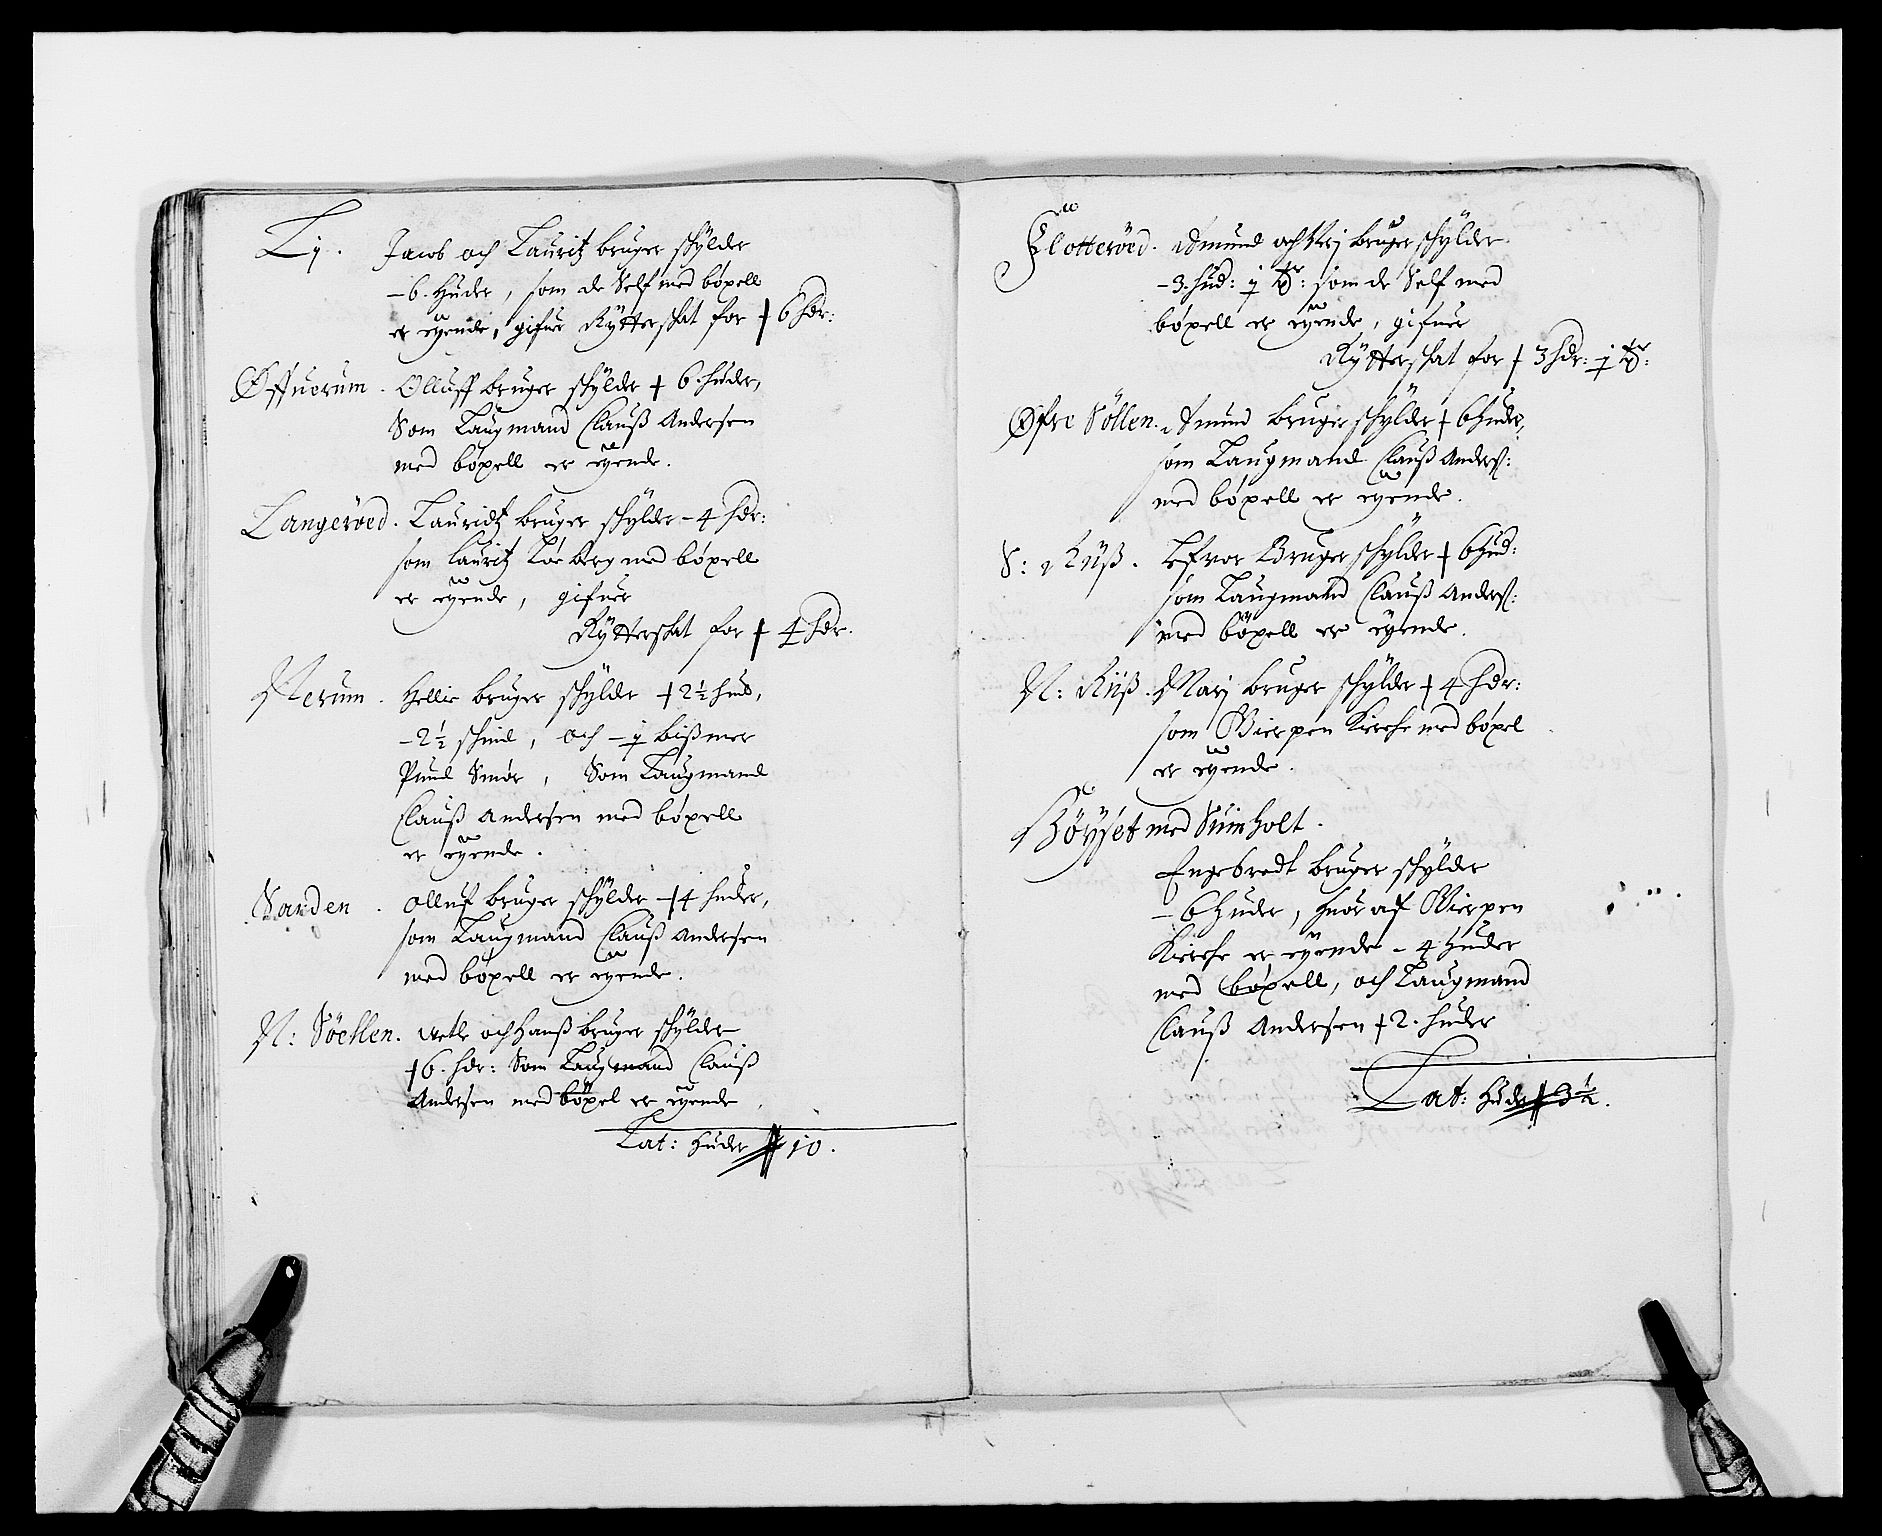 Ly. Jacob och Lauritz bruger schylder
- 6. Huder, som de Self med böxell
er eyende, gifuer Rytterschat for † 6 hdr:
Øffuerum. Olluff bruger schylder † 6. huder,
Som Laugmand Clauß Andersen
med böxell er eyende.
Langeröed. Lauridtz bruger schylder - 4 hdr:
som Lauritz med böxell
er eyende, gifuer
Rytterschat for † 4 hdr.
Nerum. Hellie bruger schylder † 2½ hud,
- 2½ schind, och - j bißmer
Pund Smør, Som Laugmand
Clauß Andersen med böxell
er eyende.
Sanden. Olluf bruger schylder - † 4 huder,
som Laugmand Clauß Andersen
med böxell er eyende.
N: Söehlen. Aetle och Hanß bruger schylder
† 6. hdr: Som Laugmand Clauß
Andersen med böxel er eyende.
Lat: Huder 10.
Flötteröed. Amund och bruger schylder
- 3. hud: j som de Self med
böxell er eyende, gifuer
Rytterschat for † 3 hdr: j
Øfre Söllen. Amund bruger schylder † 6 huder,
som Laugmand Clauß Anders:
med böxell er eyende.
S: Riiß. Lefvor Bruger schylder † 6 hud:
som Laugmand Clauß Anders:
med böxell er eyende.
N: Riiß. Narj bruger schylder † 4 hdr:
som Wierpen Kirche med böxel
er eyende.
Böysset med Sumholt.
Engebredt bruger schylder
- 6 huder, huor af Wierpen
Kirche er eyende - 4 Huder
med böxell, och Laugmand
Clauß Andersen † 2. huder
Lat: Huder 3½.